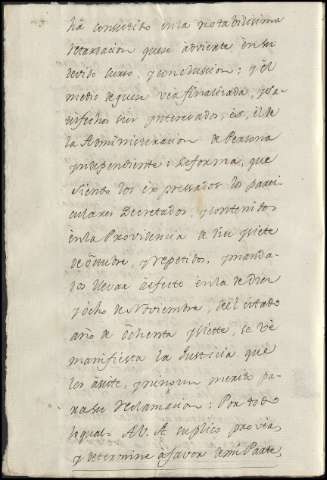 ha consistido en la notadilisima
retardacion que se advierte en su
devido curso, y conclusion; y el
medio de que se vea finalizada, y sa-
tisfechos sus interesados, es, el de
la Administracion de Persona
yndependiente: de forma, que
siendo los expresados los parti-
culares Decretados, y contenidos
en la Providencia de diez y siete
de Octubre, y repetidos, y manda-
dos llevar a efecto en la de diez
y ocho de Noviembre, de el citado
año de ochenta y siete, se ve
manifiesta la Justicia que
les asiste, y ningun merito pa-
ra su reclamacion: Por todo
lo qual= A V. A. suplico provea,
y determine a favor de mi Parte,